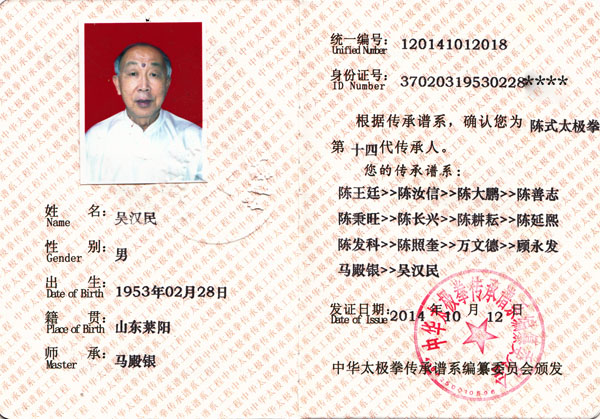 姓 名:吴汉民
Name
性 别:男
Gender
出 生:1953年02月28日
Date of Birth
籍 贯:山东莱阳
Place of Birth
师 承:马殿银
Master
统一编号:120141012018
Unified Number
身份证号:37020319530228****
ID Number
根据传承谱系,确认您为 陈式太极拳
第 十四代传承人。
您的传承谱系:
陈王廷>>陈汝信>>陈大鹏>>陈善志
陈秉旺>>陈长兴>>陈耕耘>>陈延熙
陈发科>>陈照奎>>万文德>>顾永发
马殿银>>吴汉民
发证日期:2014 年 10 月 12 日
Date of Issue
中华太极拳传承谱系编纂委员会颁发